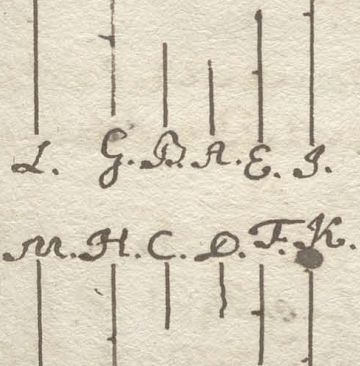 L. G. B. A. E. I.
M. H. C. D. F. K.